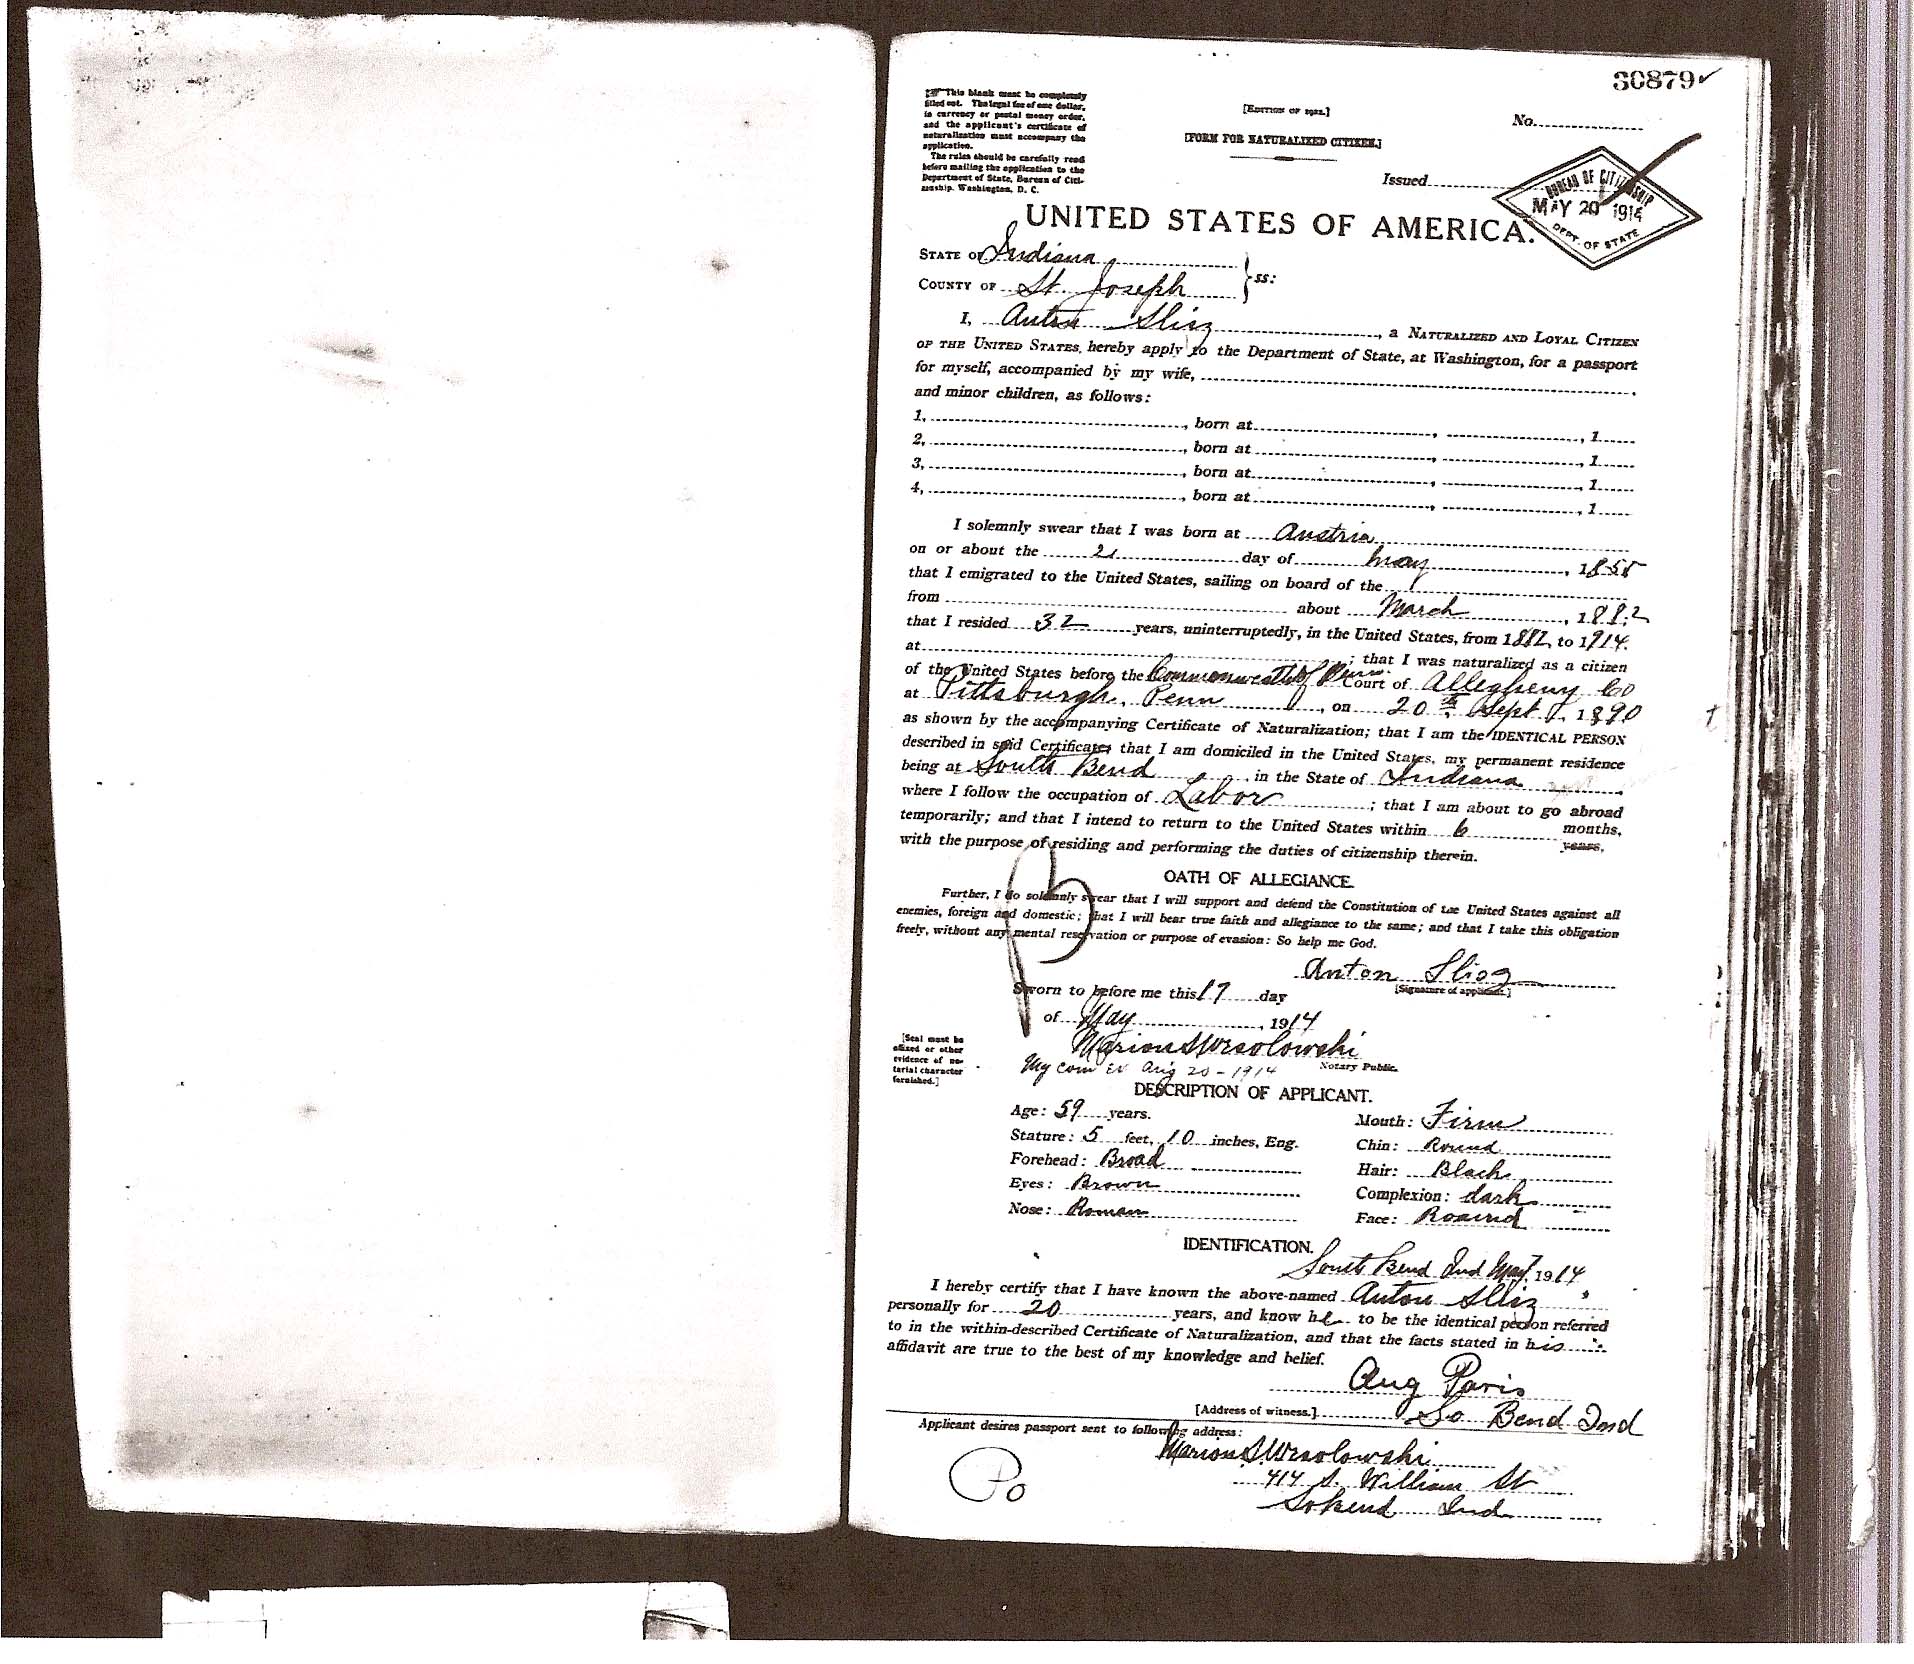 30879
☞This blank must be completely
filled out. The legal fee of one dollar,
in currency or postal money order,
and the applicant's certificate of
naturalization must accompany the
application.
The rules should be carefully read
before mailing the application to the
Department of State, Bureau of Citi-
zenship, Washington, D. C.
[EDITION OF 1912.]
[FORM FOR NATURALIZED CITIZEN.]
No.
Issued
BUREAU OF CITIZENSHIP
MAY 20 1914
DEPT. OF STATE
UNITED STATES OF AMERICA.
STATE OF Indiana
COUNTY OF St. Joseph } ss:
I, Anton Sliz, a NATURALIZED AND LOYAL CITIZEN
OF THE UNITED STATES, hereby apply to the Department of State, at Washington, for a passport
for myself, accompanied by my wife, .
and minor children, as follows:
1, , born at , , 1
2, , born at , , 1
3, , born at , , 1
4, , born at , , 1
I solemnly swear that I was born at Austria
on or about the 2 day of May, 1855
that I emigrated to the United States, sailing on board of the
from about March, 1882
that I resided 32 years, uninterruptedly, in the United States, from 1882 to 1914.
at ; that I was naturalized as a citizen
of the United States before the Commonwealth of Penn. Court of Allegheny Co
at Pittsburgh, Penn, on 20th Sept, 1890
as shown by the accompanying Certificate of Naturalization; that I am the IDENTICAL PERSON
described in said Certificate; that I am domiciled in the United States, my permanent residence
being at South Bend in the State of Indiana
where I follow the occupation of Labor; that I am about to go abroad
temporarily; and that I intend to return to the United States within 6 months,
years,
with the purpose of residing and performing the duties of citizenship therein.
OATH OF ALLEGIANCE.
Further, I do solemnly swear that I will support and defend the Constitution of the United States against all
enemies, foreign and domestic; that I will bear true faith and allegiance to the same; and that I take this obligation
freely, without any mental reservation or purpose of evasion: So help me God.
Anton Sliz
[Signature of applicant.]
Sworn to before me this 17 day
of May, 1914
Marion S Wesolowski
Notary Public.
My com Ex Aug 20-1914
[Seal must be
affixed or other
evidence of no-
tarial character
furnished.]
DESCRIPTION OF APPLICANT.
Age: 59 years.
Stature: 5 feet, 10 inches, Eng.
Forehead: Broad
Eyes: Brown
Nose: Roman
Mouth: Firm
Chin: Round
Hair: Black
Complexion: dark
Face: Round
IDENTIFICATION.
South Bend Ind May, 1914
I hereby certify that I have known the above-named Anton Sliz
personally for 20 years, and know he to be the identical person referred
to in the within-described Certificate of Naturalization, and that the facts stated in his
affidavit are true to the best of my knowledge and belief.
Aug Paris
[Address of witness.] So Bend Ind
Applicant desires passport sent to following address:
Marion S. Wesolowski
414 S. William St
So Bend Ind
Po